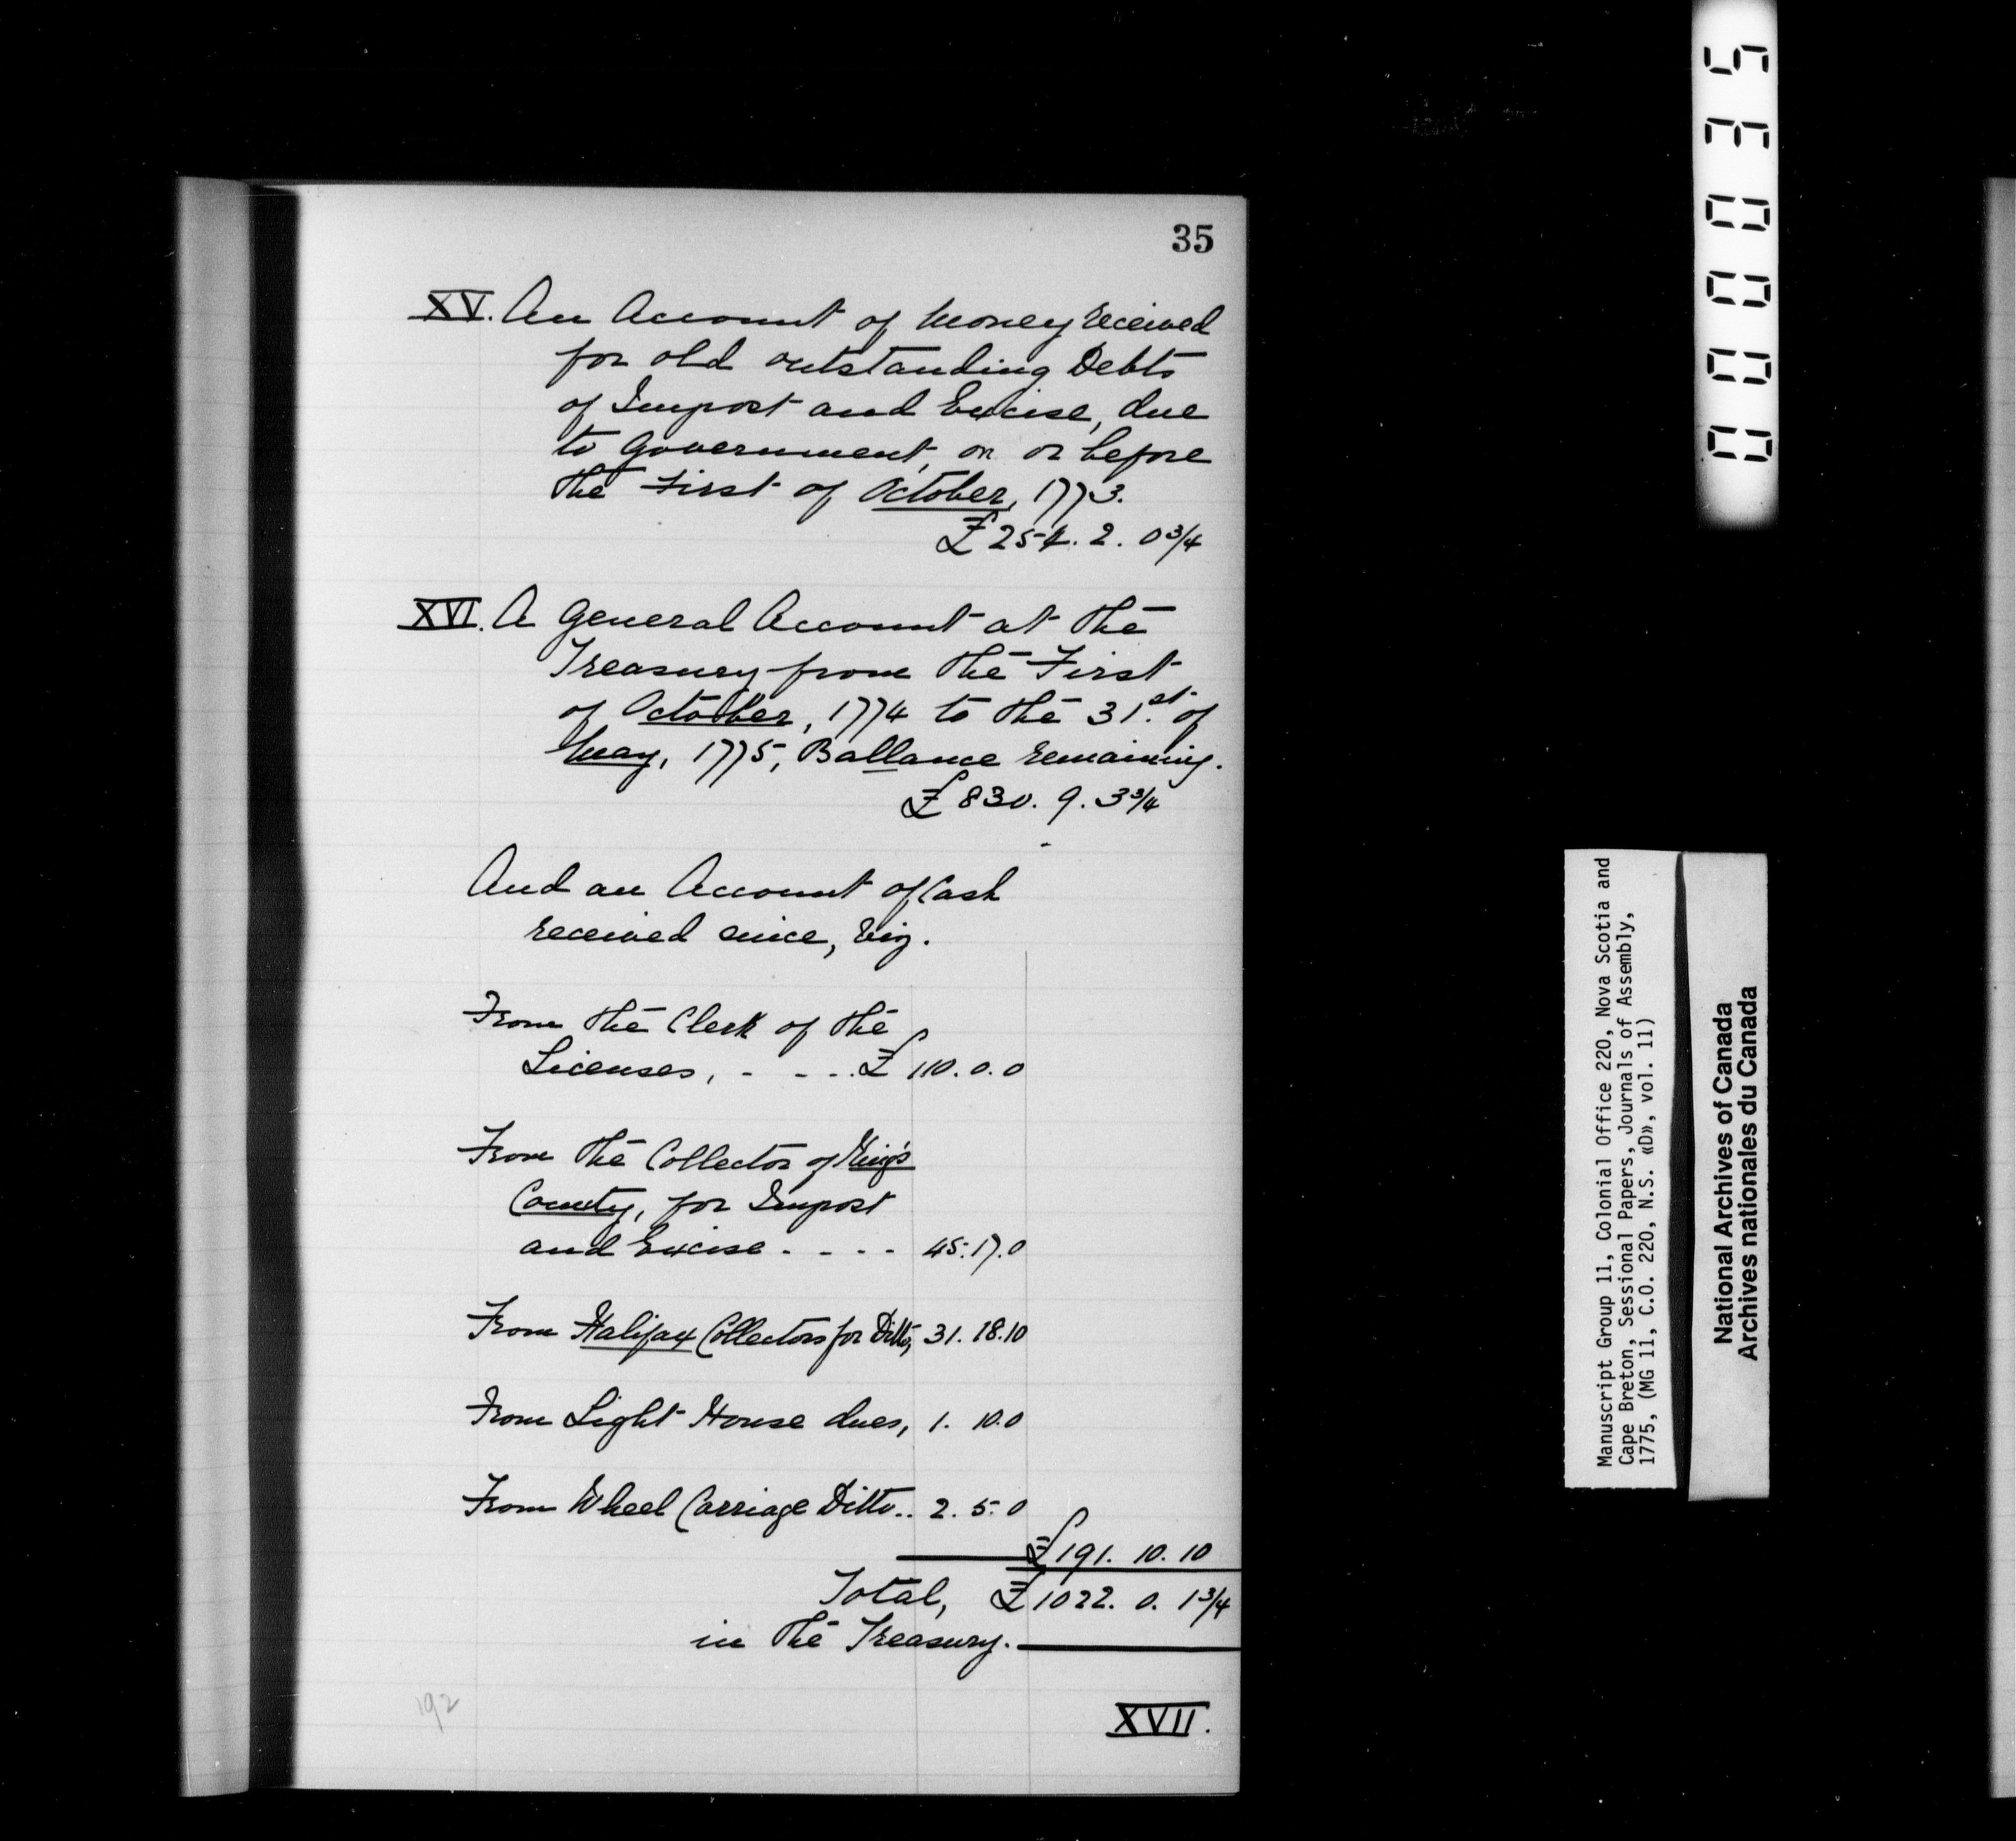 35
XV. An Account of Money received
for old outstanding Debts
of Impost and Excise, due
to Government, on or before
the First of October, 1773.
£254. 2. 0 3/4
XVI. A General Account at the
Treasury from the First
of October, 1774 to the 31st. of
May, 1775, Ballance remaining.
£830. 9. 3 3/4
And an Account of Cash
received since, Viz.
From the Clerk of the
Licenses, - - - . £ 110. 0. 0
From the Collector of King's
County, for Impost
and Excise - - - - 45. 17. 0
From Halifax Collectors for Ditto, 31. 18. 10
From Light House dues, 1. 10. 0
From Wheel Carriage Ditto.. 2. 5. 0
£191. 10. 10
Total, £1022. 0. 1 3/4
in the Treasury.
192
XVII.
000035
Manuscript Group 11, Colonial Office 220, Nova Scotia and
Cape Breton, Sessional Papers, Journals of Assembly,
1775, (MG 11, C.O. 220, N.S. «D», vol. 11)
National Archives of Canada
Archives nationales du Canada